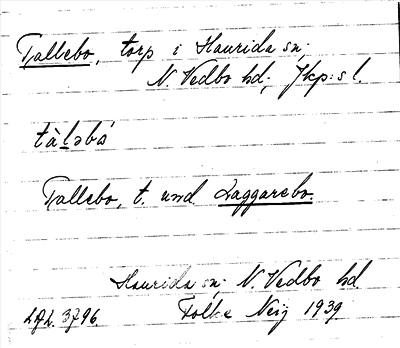 Tallebo, torp i Haurida sn;
N. Vedbo hd; Jkp:s l.
tàləbó
Tallebo, t. und Laggarebo.
Haurida sn; N. Vedbo hd.
Folke Neij 1939